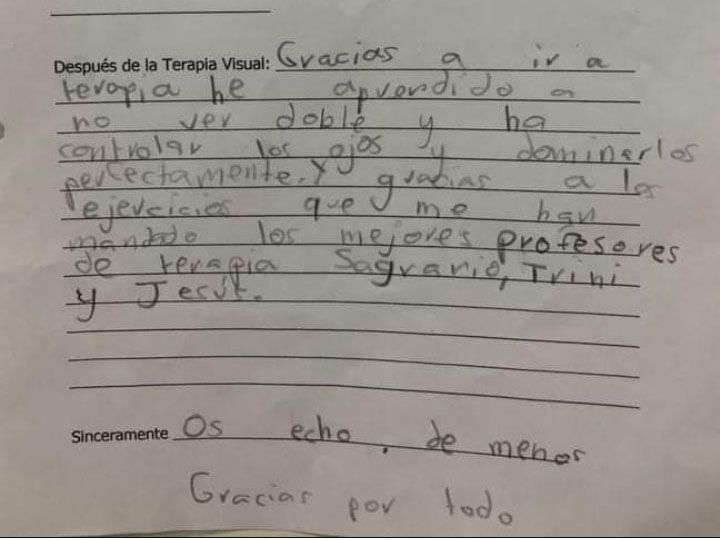 Después de la Terapia Visual: Gracias a ir a
terapia he aprendido a
no ver doble y ha
controlar los ojos y dominarlos
perfectamente. Y gracias a los
ejercicios que me han
mandado los mejores profesores
de terapia Sagrario, Trini
y Jesús.
Sinceramente Os echo, de menos
Gracias por todo